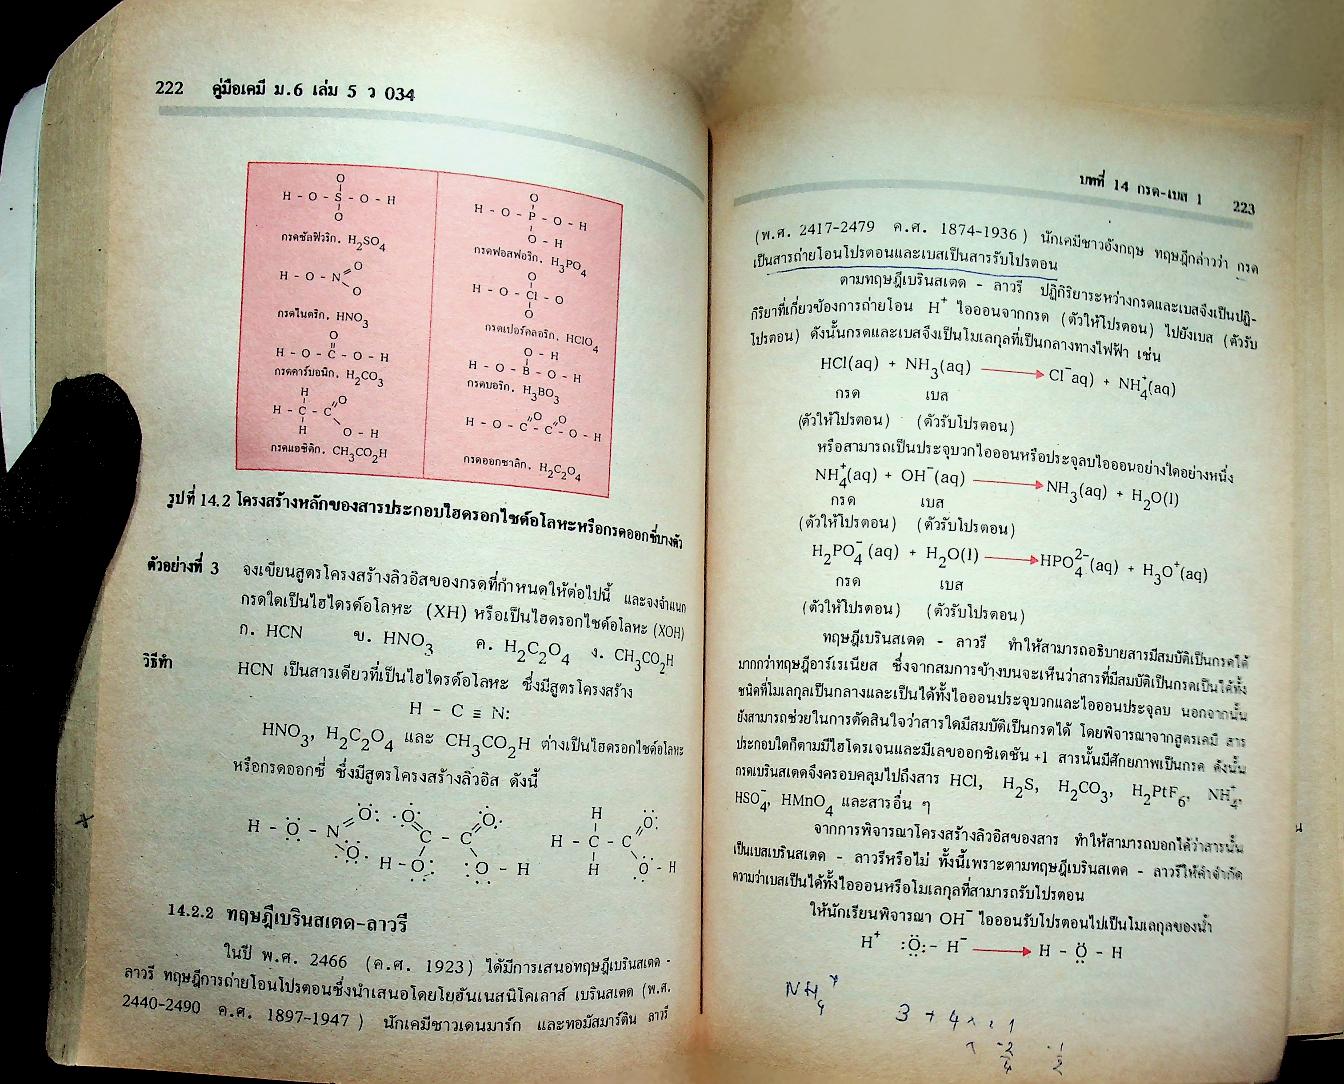 222 คู่มือเคมี ม.6 เล่ม 5 ว 034
O
H - O - S - O - H
O
กรดซัลฟิวริก, H₂SO₄
O
H - O - N
O
กรดไนตริก, HNO₃
O
H - O - C - O - H
กรดคาร์บอนิก, H₂CO₃
H O
H - C - C
H O - H
กรดแอซิติก, CH₃CO₂H
O
H - O - P - O - H
O - H
กรดฟอสฟอริก, H₃PO₄
O
H - O - Cl - O
O
กรดเปอร์คลอริก, HClO₄
O - H
H - O - B - O - H
กรดบอริก, H₃BO₃
O O
H - O - C - C - O - H
กรดออกซาลิก, H₂C₂O₄
รูปที่ 14.2 โครงสร้างหลักของสารประกอบไฮดรอกไซด์อโลหะหรือกรดออกซีบางตัว
ตัวอย่างที่ 3 จงเขียนสูตรโครงสร้างลิวอิสของกรดที่กำหนดให้ต่อไปนี้ และจงจำแนก
กรดใดเป็นไฮไดรด์อโลหะ (XH) หรือเป็นไฮดรอกไซด์อโลหะ (XOH)
ก. HCN ข. HNO₃ ค. H₂C₂O₄ ง. CH₃CO₂H
วิธีทำ HCN เป็นสารเดียวที่เป็นไฮไดรด์อโลหะ ซึ่งมีสูตรโครงสร้าง
H - C ≡ N:
HNO₃, H₂C₂O₄ และ CH₃CO₂H ต่างเป็นไฮดรอกไซด์อโลหะ
หรือกรดออกซี ซึ่งมีสูตรโครงสร้างลิวอิส ดังนี้
O: :O O: H O:
H - O - N C - C H - C - C
O: H - O: :O - H H O - H
14.2.2 ทฤษฎีเบรินสเตด-ลาวรี
ในปี พ.ศ. 2466 (ค.ศ. 1923) ได้มีการเสนอทฤษฎีเบรินสเตด -
ลาวรี ทฤษฎีการถ่ายโอนโปรตอนซึ่งนำเสนอโดยโยฮันเนสนิโคเลาส์ เบรินสเตด (พ.ศ.
2440-2490 ค.ศ. 1897-1947 ) นักเคมีชาวเดนมาร์ก และทอมัสมาร์ติน ลาวรี
บทที่ 14 กรด-เบส 1 223
(พ.ศ. 2417-2479 ค.ศ. 1874-1936 ) นักเคมีชาวอังกฤษ ทฤษฎีกล่าวว่า กรด
เป็นสารถ่ายโอนโปรตอนและเบสเป็นสารรับโปรตอน
ตามทฤษฎีเบรินสเตด - ลาวรี ปฏิกิริยาระหว่างกรดและเบสจึงเป็นปฏิ-
กิริยาที่เกี่ยวข้องการถ่ายโอน H⁺ ไอออนจากกรด (ตัวให้โปรตอน) ไปยังเบส (ตัวรับ
โปรตอน) ดังนั้นกรดและเบสจึงเป็นโมเลกุลที่เป็นกลางทางไฟฟ้า เช่น
HCl(aq) + NH₃(aq) ⟶ Cl⁻aq) + NH₄⁺(aq)
กรด เบส
(ตัวให้โปรตอน) (ตัวรับโปรตอน)
หรือสามารถเป็นประจุบวกไอออนหรือประจุลบไอออนอย่างใดอย่างหนึ่ง
NH₄⁺(aq) + OH⁻(aq) ⟶ NH₃(aq) + H₂O(l)
กรด เบส
(ตัวให้โปรตอน) (ตัวรับโปรตอน)
H₂PO₄⁻(aq) + H₂O(l) ⟶ HPO₄²⁻(aq) + H₃O⁺(aq)
กรด เบส
(ตัวให้โปรตอน) (ตัวรับโปรตอน)
ทฤษฎีเบรินสเตด - ลาวรี ทำให้สามารถอธิบายสารมีสมบัติเป็นกรดได้
มากกว่าทฤษฎีอาร์เรเนียส ซึ่งจากสมการข้างบนจะเห็นว่าสารที่มีสมบัติเป็นกรดเป็นได้ทั้ง
ชนิดที่โมเลกุลเป็นกลางและเป็นได้ทั้งไอออนประจุบวกและไอออนประจุลบ นอกจากนั้น
ยังสามารถช่วยในการตัดสินใจว่าสารใดมีสมบัติเป็นกรดได้ โดยพิจารณาจากสูตรเคมี สาร
ประกอบใดก็ตามมีไฮโดรเจนและมีเลขออกซิเดชัน +1 สารนั้นมีศักยภาพเป็นกรด ดังนั้น
กรดเบรินสเตดจึงครอบคลุมไปถึงสาร HCl, H₂S, H₂CO₃, H₂PtF₆, NH₄⁺,
HSO₄⁻, HMnO₄ และสารอื่น ๆ
จากการพิจารณาโครงสร้างลิวอิสของสาร ทำให้สามารถบอกได้ว่าสารนั้น
เป็นเบสเบรินสเตด - ลาวรีหรือไม่ ทั้งนี้เพราะตามทฤษฎีเบรินสเตด - ลาวรีให้คำจำกัด
ความว่าเบสเป็นได้ทั้งไอออนหรือโมเลกุลที่สามารถรับโปรตอน
ให้นักเรียนพิจารณา OH⁻ ไอออนรับโปรตอนไปเป็นโมเลกุลของน้ำ
H⁺ :Ö:- H⁻ ⟶ H - Ö - H
NH₄⁺
3 + 4